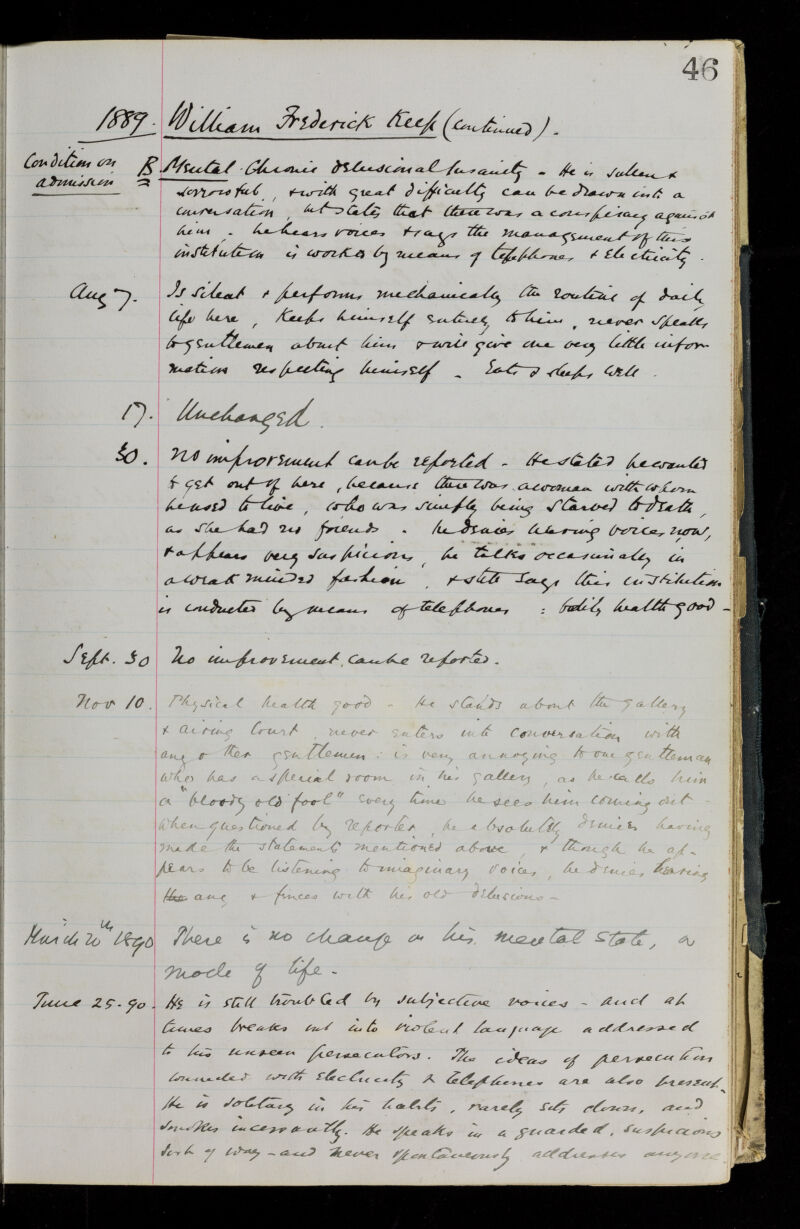 46
1889. William Frederick Keep (continued).
Condition on admission B Mental. Chronic delusional Insanity - He is sullen &
sorrowful, & with great difficulty can be drawn into a
conversation, but states that there was a conspiracy against
him - he hears voices & says the management of this
institution is worked by means of telephones & Electricity.
Aug 7. Is silent & performs mechanically the routine of daily
life here, Keeps himself entirely to him, never speaks
to gentlemen about him & will give one very little infor-
mation respecting himself - Eats & sleeps well.
17. Unchanged.
30. No improvement can be reported - He stated he wanted
to get out of here, because there was a woman with whom
he used to live, who was simply being starved to death,
as she had no friends - he denies hearing voices now,
& appears very suspicious, he talks occasionally in
a weak minded fashion, & still says this institution
is conducted by means of telephones : bodily health good -
Sept. 30 No improvement can be reported.
Nov 10. Physical health good - He stands about the gallery
& airing Court, never enters into conversation with
any other gentlemen : is very annoying to one gentleman
who has a special room in his gallery, as he calls him
a "bloody old fool" every time he sees him coming out -
When questioned by reporter, he absolutely denies having
made the statements mentioned above, & though he ap-
pears to be listening to imaginary voices, he denies having
any & fences with his old delusions -
March 20th 1890 There is no change in his mental state, or
mode of life -
June 25-90. He is still troubled by subjective voices - and at
times breaks out into violent language addressed
to his unseen persecutors. The ideas of persecution
connected with Electricity & telephones are also present.
He is solitary in his habits, rarely sits down, and
smokes incessantly. He speaks in a guarded, suspicious
sort of way - and never spontaneously addresses anyone